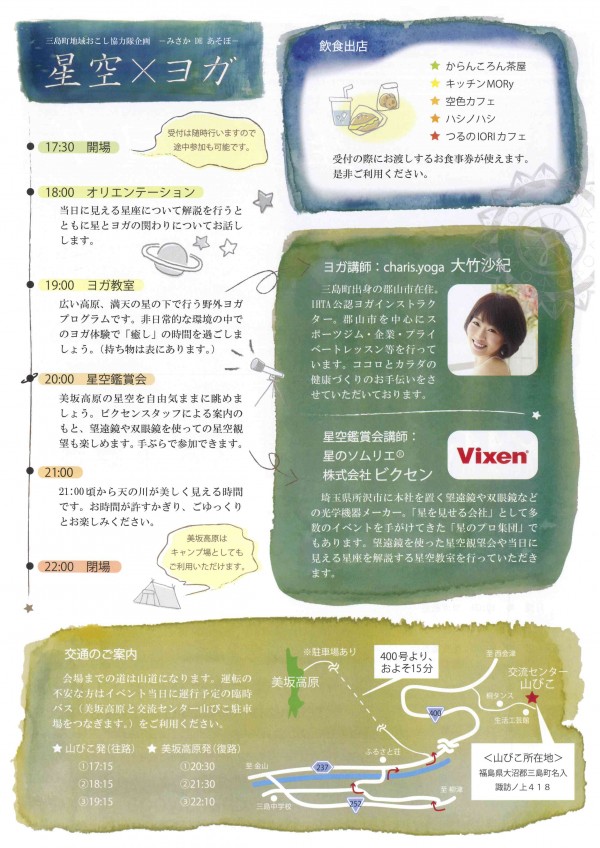 三島町地域おこし協力隊企画　−みさか DE あそぼ−
星空×ヨガ
17:30　開場
受付は随時行いますので
途中参加も可能です。
18:00　オリエンテーション
当日に見える星座について解説を行うと
ともに星とヨガの関わりについてお話し
します。
19:00　ヨガ教室
広い高原、満天の星の下で行う野外ヨガ
プログラムです。非日常的な環境の中で
のヨガ体験で「癒し」の時間を過ごしま
しょう。（持ち物は表にあります。）
20:00　星空鑑賞会
美坂高原の星空を自由気ままに眺めま
しょう。ビクセンスタッフによる案内の
もと、望遠鏡や双眼鏡を使っての星空観
望も楽しめます。手ぶらで参加できます。
21:00
21:00頃から天の川が美しく見える時間
です。お時間が許すかぎり、ごゆっくり
とお楽しみください。
美坂高原は
キャンプ場としても
ご利用いただけます。
22:00　閉場
飲食出店
★ からんころん茶屋
★ キッチンMORy
★ 空色カフェ
★ ハシノハシ
★ つるのIORIカフェ
受付の際にお渡しするお食事券が使えます。
是非ご利用ください。
ヨガ講師：charis.yoga 大竹沙紀
三島町出身の郡山市在住。
IHTA公認ヨガインストラク
ター。郡山市を中心にス
ポーツジム・企業・プライ
ベートレッスン等を行って
います。ココロとカラダの
健康づくりのお手伝いをさ
せていただいております。
星空鑑賞会講師：
星のソムリエ®
株式会社 ビクセン
Vixen®
埼玉県所沢市に本社を置く望遠鏡や双眼鏡など
の光学機器メーカー。「星を見せる会社」として多
数のイベントを手がけてきた「星のプロ集団」で
もあります。望遠鏡を使った星空観望会や当日に
見える星座を解説する星空教室を行っていただき
ます。
交通のご案内
会場までの道は山道になります。運転の
不安な方はイベント当日に運行予定の臨時
バス（美坂高原と交流センター山びこ駐車
場をつなぎます。）をご利用ください。
★ 山びこ発（往路）　★ 美坂高原発（復路）
①17:15　①20:30
②18:15　②21:30
③19:15　③22:10
※駐車場あり
美坂高原
400号より、
およそ15分
至 西会津
交流センター
山びこ
桐タンス
生活工芸館
400
ふるさと荘
至 金山
237
三島中学校
252
至 柳津
＜山びこ所在地＞
福島県大沼郡三島町名入
諏訪ノ上４１８